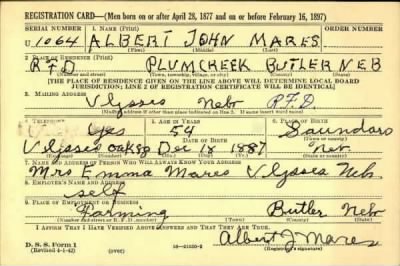 REGISTRATION CARD—(Men born on or after April 28, 1877 and on or before February 16, 1897)
SERIAL NUMBER 1. NAME (Print) ORDER NUMBER
U 1064 ALBERT JOHN MARES
(First) (Middle) (Last)
2. PLACE OF RESIDENCE (Print)
R F D PLUMCREEK BUTLER NEB
(Number and street) (Town, township, village, or city) (County) (State)
[THE PLACE OF RESIDENCE GIVEN ON THE LINE ABOVE WILL DETERMINE LOCAL BOARD
JURISDICTION; LINE 2 OF REGISTRATION CERTIFICATE WILL BE IDENTICAL]
3. MAILING ADDRESS
Ulysses Nebr R.F.D
[Mailing address if other than place indicated on line 2. If same insert word same]
4. TELEPHONE 5. AGE IN YEARS 6. PLACE OF BIRTH
Yes 54 Saunders
DATE OF BIRTH (Town or county)
Ulysses Oak Dec 18 1887 Neb
7. NAME AND ADDRESS OF PERSON WHO WILL ALWAYS KNOW YOUR ADDRESS
Mrs Emma Mares Ulysses Neb
8. EMPLOYER'S NAME AND ADDRESS
self
9. PLACE OF EMPLOYMENT OR BUSINESS
Farming Butler Neb
(Number and street or R. F. D. number) (Town) (County) (State)
I AFFIRM THAT I HAVE VERIFIED ABOVE ANSWERS AND THAT THEY ARE TRUE.
D. S. S. Form 1
(Revised 4-1-42) (over) Albert J Mares
(Registrant's signature)